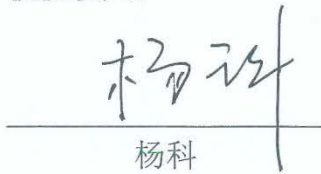 杨科
杨科